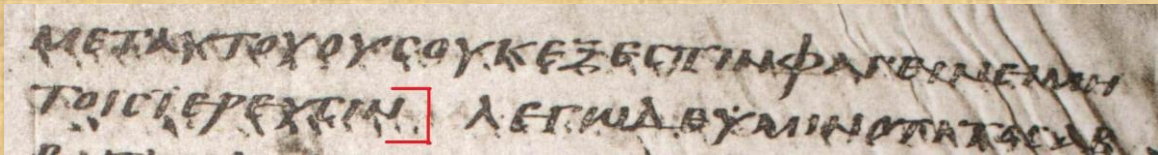 ΜΕΤΑΥΤΟΥΟΥСΟΥΚΕΞΕСΤΙΝΦΑΓΕΙΝΕΙΜΗ
ΤΟΙСΙΕΡΕΥСΙΝ ΛΕΓΩΔΕΥΜΙΝΟΤΙ